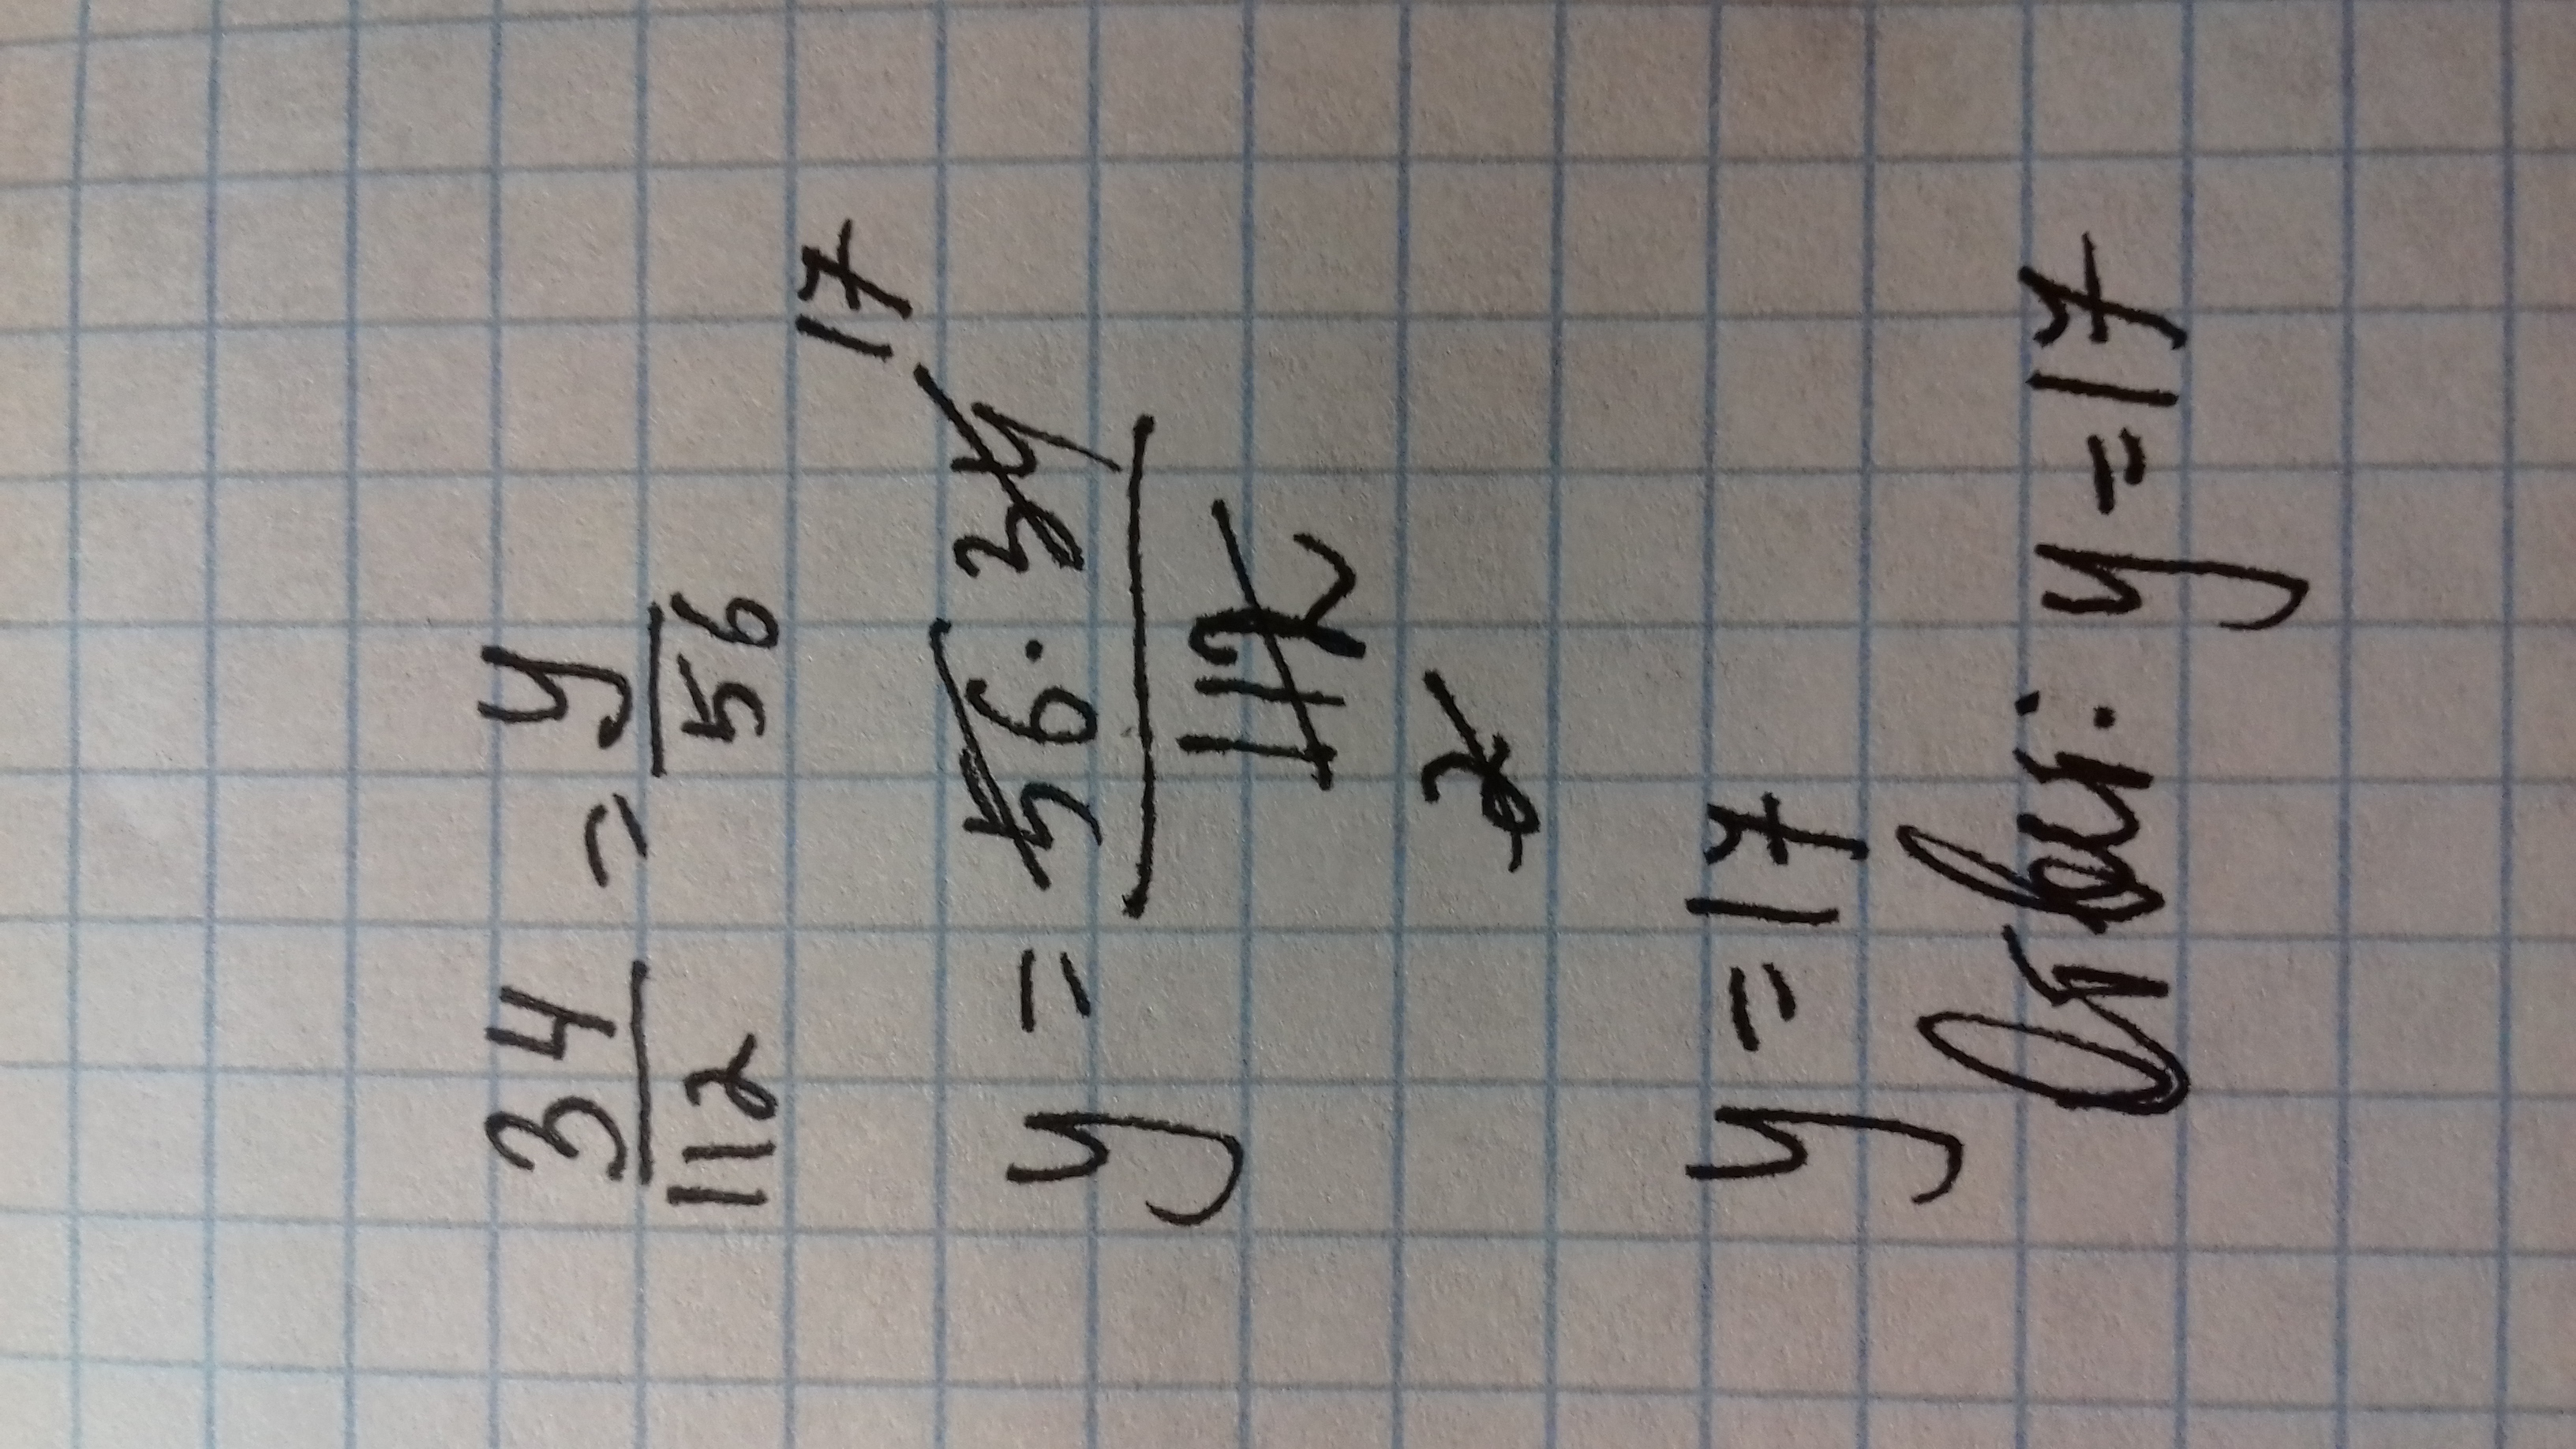 34/112 = y/56
y = 56 · 34/112
17
2
y = 17
Ответ: y = 17